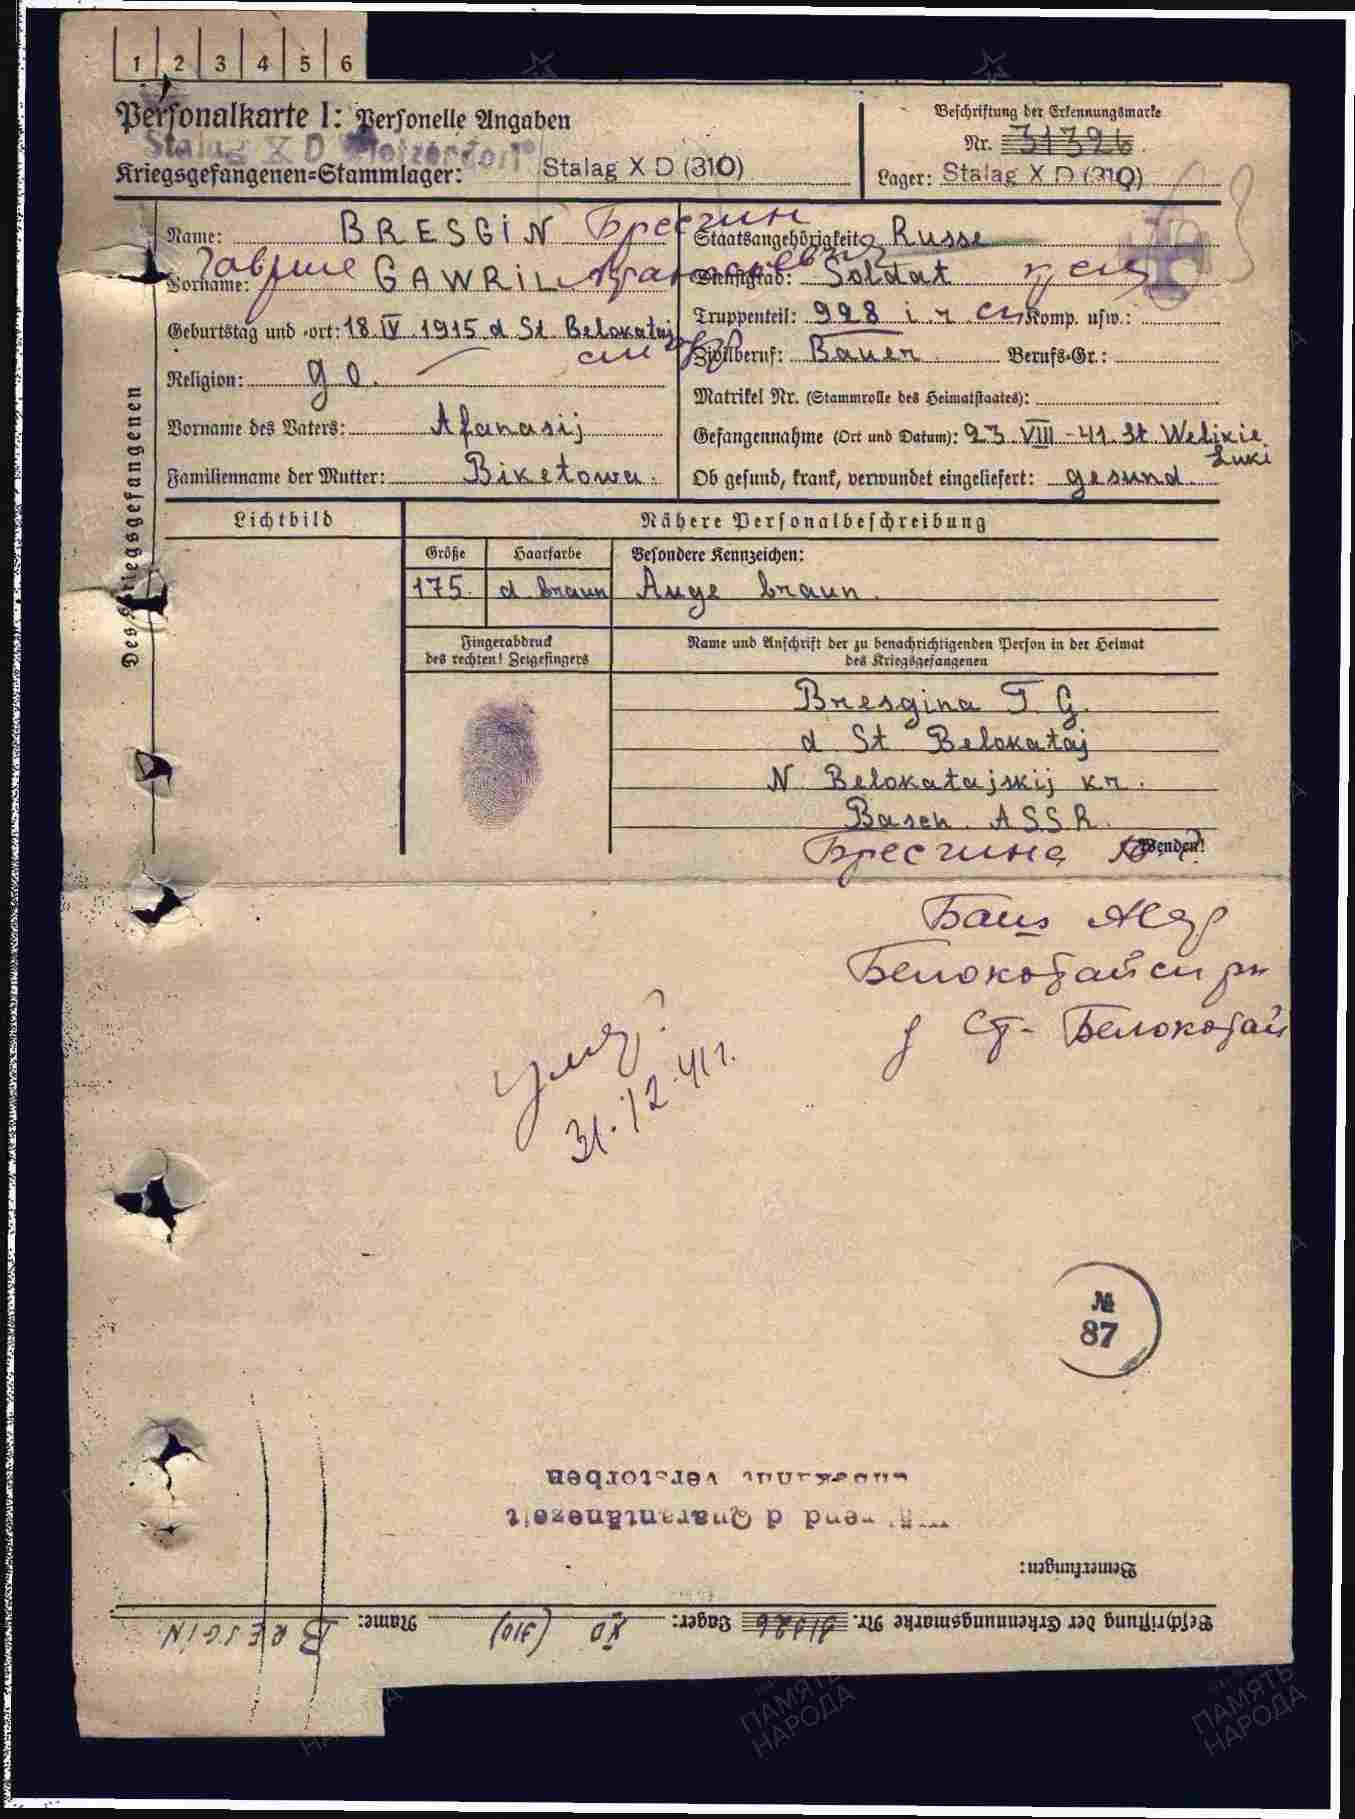 1 2 3 4 5 6
Personalkarte I: Personelle Angaben
Beschriftung der Erkennungsmarke
Stalag X D
Nr. 31326
Kriegsgefangenen-Stammlager: Stalag X D (310)
Lager: Stalag X D (310)
Des Kriegsgefangenen
Name: BRESGIN Бресгин
Staatsangehörigkeit: Russe
Vorname: GAWRIL
Dienstgrad: Soldat
Geburtstag und -ort: 18. IV. 1915. d St. Belokataj
Truppenteil: 998 i. r. Komp. usw.:
Zivilberuf: Bauer Berufs-Gr.:
Religion: g o.
Matrikel Nr. (Stammrolle des Heimatstaates):
Vorname des Vaters: Afanasij
Gefangennahme (Ort und Datum): 23. VIII - 41. St. Welikie Luki
Familienname der Mutter: Biketowa.
Ob gesund, krank, verwundet eingeliefert: gesund.
Lichtbild
Nähere Personalbeschreibung
Größe Haarfarbe Besondere Kennzeichen:
175. d braun Auge braun.
Fingerabdruck des rechten! Zeigefingers
Name und Anschrift der zu benachrichtigenden Person in der Heimat
des Kriegsgefangenen
Bresgina T. G.
d St Belokataj
N. Belokatajskij kr.
Basch. ASSR.
Wenden!
Бресгина
Баш АССР
Белокотайск рн
д Ст- Белокотай
умер
31.12.41г.
№
87
unbekannt verstorben
während d Quarantänezeit
Bemerkungen:
Beschriftung der Erkennungsmarke Nr. 31326 Lager: XD (310) Name: BRESGIN
ПАМЯТЬ НАРОДА